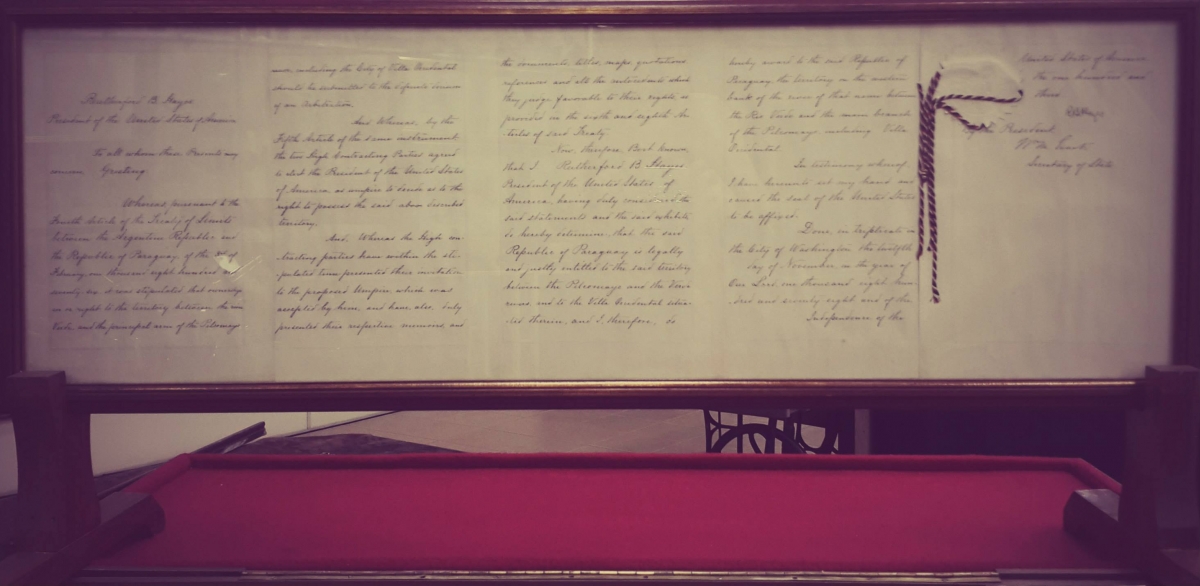 Rutherford B. Hayes
President of the United States of America
To all whom these Presents may
concern Greeting.
Whereas, pursuant to the
Fourth Article of the Treaty of Limits
between the Argentine Republic and
the Republic of Paraguay of the 3rd of
February, one thousand eight hundred and
seventy six it was stipulated that ownership
in or right to the territory between the
Verde, and the principal arm of the Pilcomayo
including the City of Villa Occidental
should be submitted to the definite
of an arbitration
And Whereas, by the
Fifth Article of the same instrument
the two High Contracting Parties agreed
to elect the President of the United States
of America as umpire to decide as to the
right to possess the said above described
territory.
And, Whereas the High con-
tracting parties have within the sti-
pulated term presented their invitation
to the proposed Umpire, which was
accepted by him, and have, also, duly
presented their respective memoirs, and
the documents, titles, maps, quotations
references and all the
they judge favorable to their rights, as
provided in the sixth and eighth Ar-
ticles of said Treaty.
Now, therefore, Be it known,
that I Rutherford B. Hayes
President of the United States of
America, having duly considered the
said statements and the said exhibits
do hereby determine, that the said
Republic of Paraguay is legally
and justly entitled to the said territory
between the Pilcomayo and the Verde
rivers and to the Villa Occidental situa-
ted therein, and I, therefore, do
hereby award to the said Republic of
Paraguay, the territory on the western
bank of the river of that name between
the Rio Verde and the main branch
of the Pilcomayo, including Villa
Occidental.
In testimony whereof,
I have hereunto set my hand and
caused the seal of the United States
to be affixed.
Done, in triplicate in
the City of Washington the twelfth
day of November, in the year of
Our Lord, one thousand eight hun-
dred and seventy eight and of the
Independence of the
United States of America
the one hundred and
third
R B Hayes
By the President
Wm. M. Evarts
Secretary of State